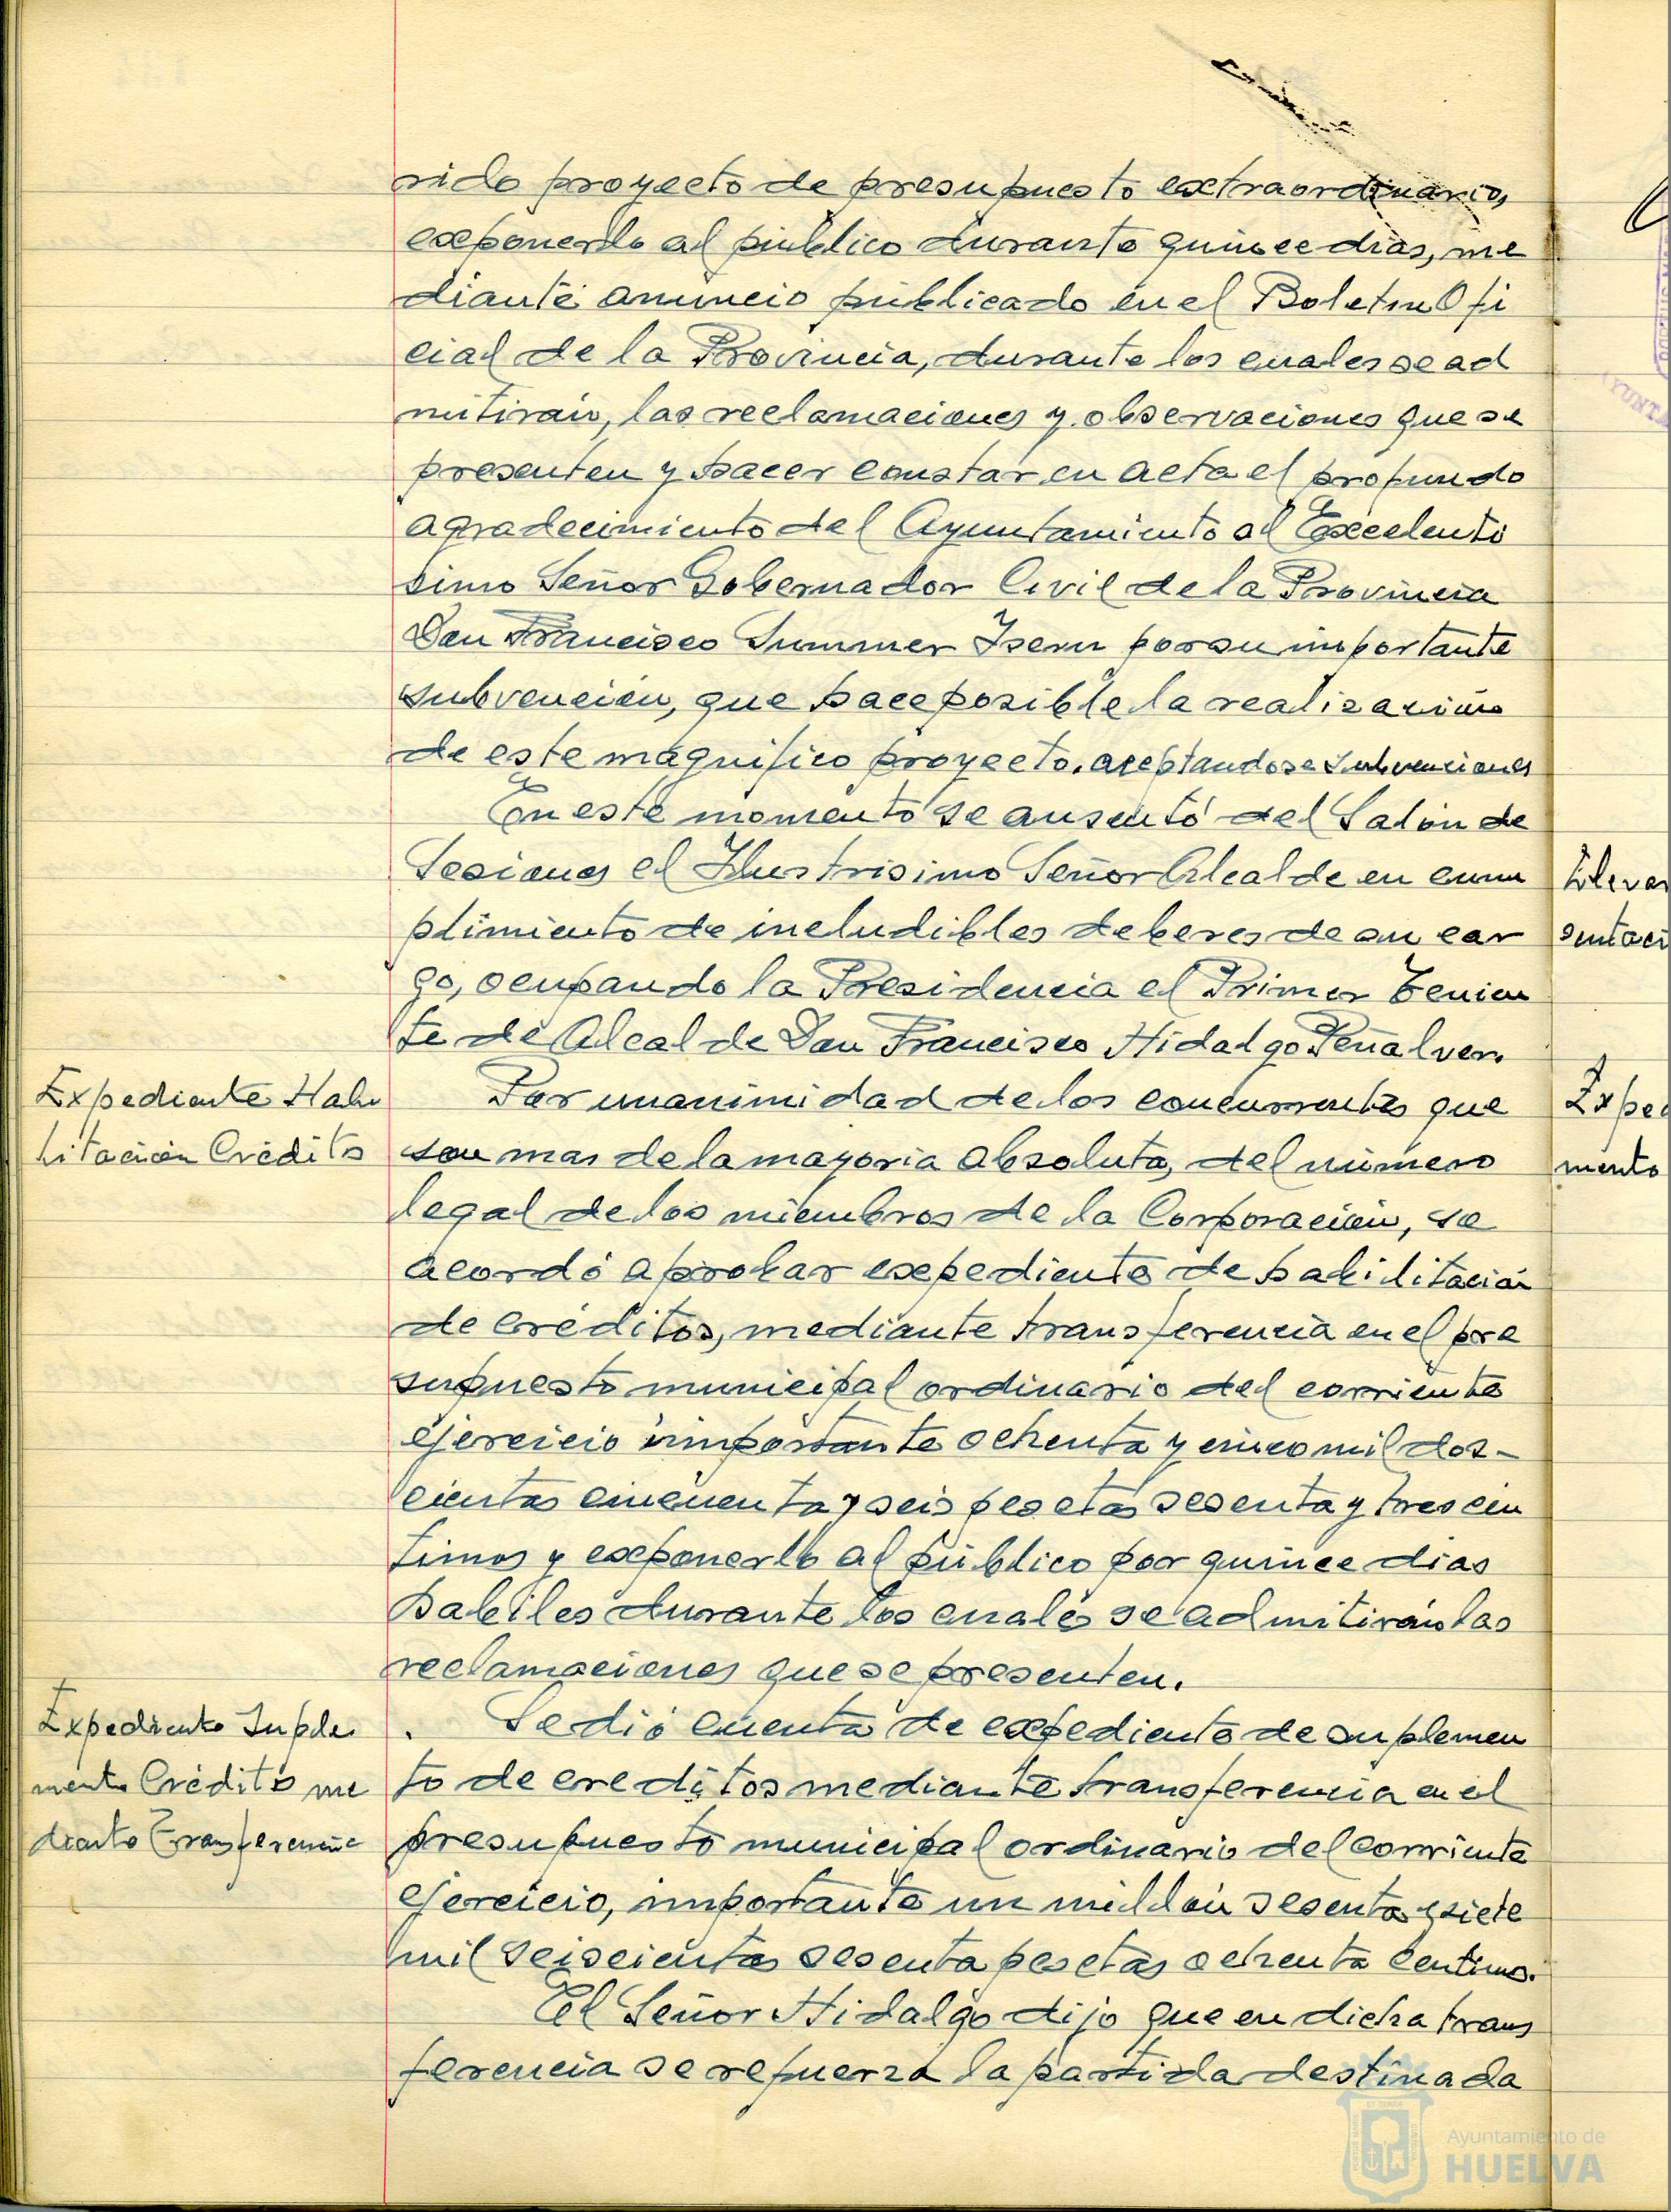 rido proyecto de presupuesto extraordinario,
exponerlo al público durante quince dias, me
diante anuncio públicado en el Boletin Ofi
cial de la Provincia, durante los cuales se ad
mitirán, las reclamaciones y observaciones que se
presenten y hacer constar en acta el profundo
agradecimiento del Ayuntamiento al Excelenti
simo Señor Gobernador Civil de la Provincia
Don Francisco Summer Isern por su importante
subvención, que hace posible la realización
de este magnifico proyecto. aceptandose subvenciones
En este momento se ausentó del Salón de
Sesiones el Ilustrisimo Señor Alcalde en cum
plimiento de ineludibles deberes de su car
go, ocupando la Presidencia el Primer Tenien
te de Alcalde Don Francisco Hidalgo Peñalver.
Expediente Habi
litación Crédito
Por unanimidad de los concurrentes que
son mas de la mayoria absoluta, del número
legal de los miembros de la Corporación, se
acordó aprobar expediente de habilitación
de créditos, mediante transferencia en el pre
supuesto municipal ordinario del corriente
ejercicio importante ochenta y cinco mil dos-
cientas cincuenta y seis pesetas sesenta y tres cén
timos y exponerlo al público por quince dias
habiles durante los cuales se admitirán las
reclamaciones que se presenten.
Expediente Suple
mento Crédito me
diante Transferencia
Se dió cuenta de expediente de suplemen
to de creditos mediante transferencia en el
presupuesto municipal ordinario del corriente
ejercicio, importante un millón sesenta y siete
mil seiscientas sesenta pesetas ochenta centimos.
El Señor Hidalgo dijo que en dicha trans
ferencia se refuerza la partida destinada
Exped
mento
Ayuntamiento de
HUELVA